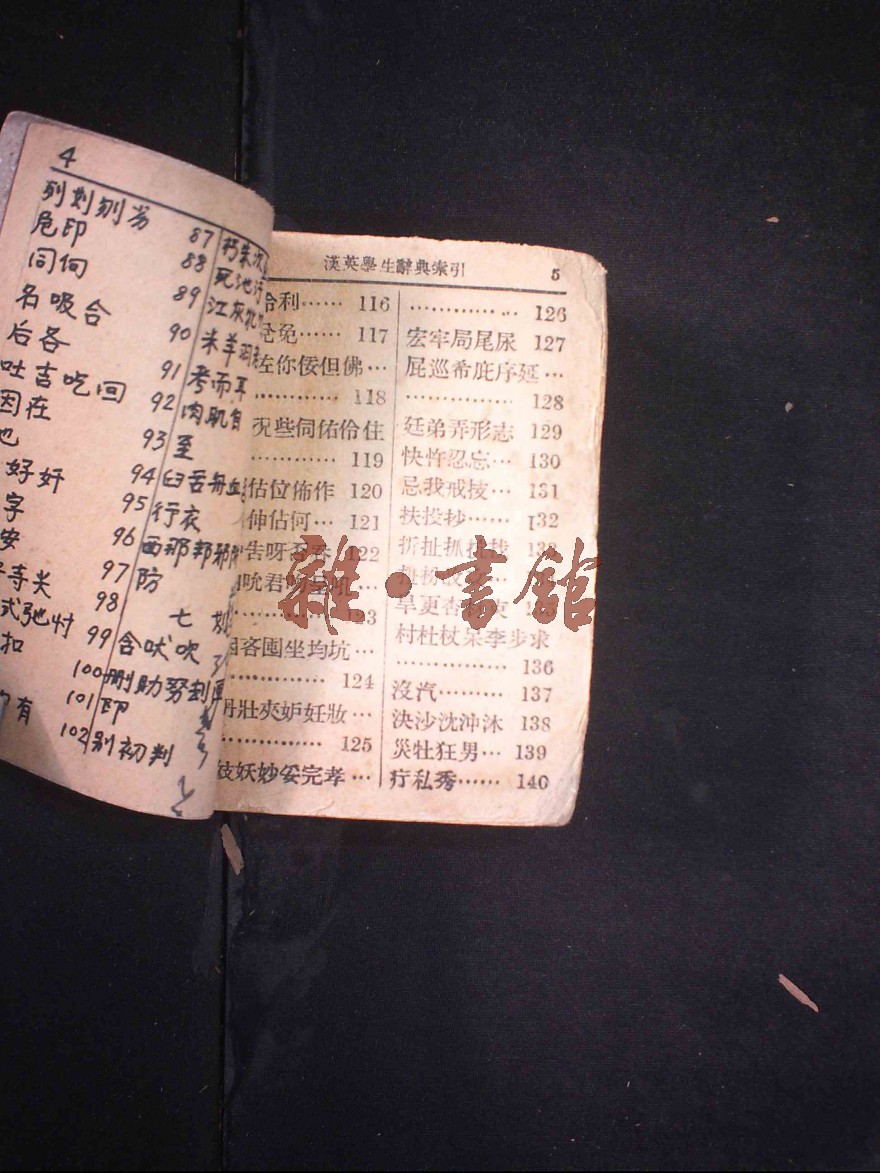 4
列刘刎劣 87
危印 88
同何 89
名吸合 90
后各 91
吐吉吃回 92
因在 93
也 94
好奸 95
字 96
安 97
寺尖 98
式弛忖 99
扣 100
101
有 102
朽朱次
死池汙
江灰
米羊羽
考而耳
肉肌自
至
臼舌舟血
行衣
西那邦邪
防
七 划
含吠吹
刪助努刦
即
别初判
漢英學生辭典索引 5
利…… 116
免…… 117
左你佞但佛…
………… 118
况些伺佑伶住
………… 119
估位佈作 120
伸佔何… 121
告呀吞 122
吮君吟呈吼…
………… 123
困吝圄坐均坑…
………… 124
丹壯夾妒妊妝…
………… 125
妓妖妙妥完孝…
………… 126
宏牢局尾尿 127
屁巡希庇序延…
………… 128
廷弟弄形志 129
快忤忍忘… 130
忌我戒技… 131
扶投抄…… 132
折扯抓
旱更杏
村杜杖呆李步求
………… 136
沒汽……… 137
決沙沈沖沐 138
災牡狂男… 139
疔私秀…… 140
雜·書館